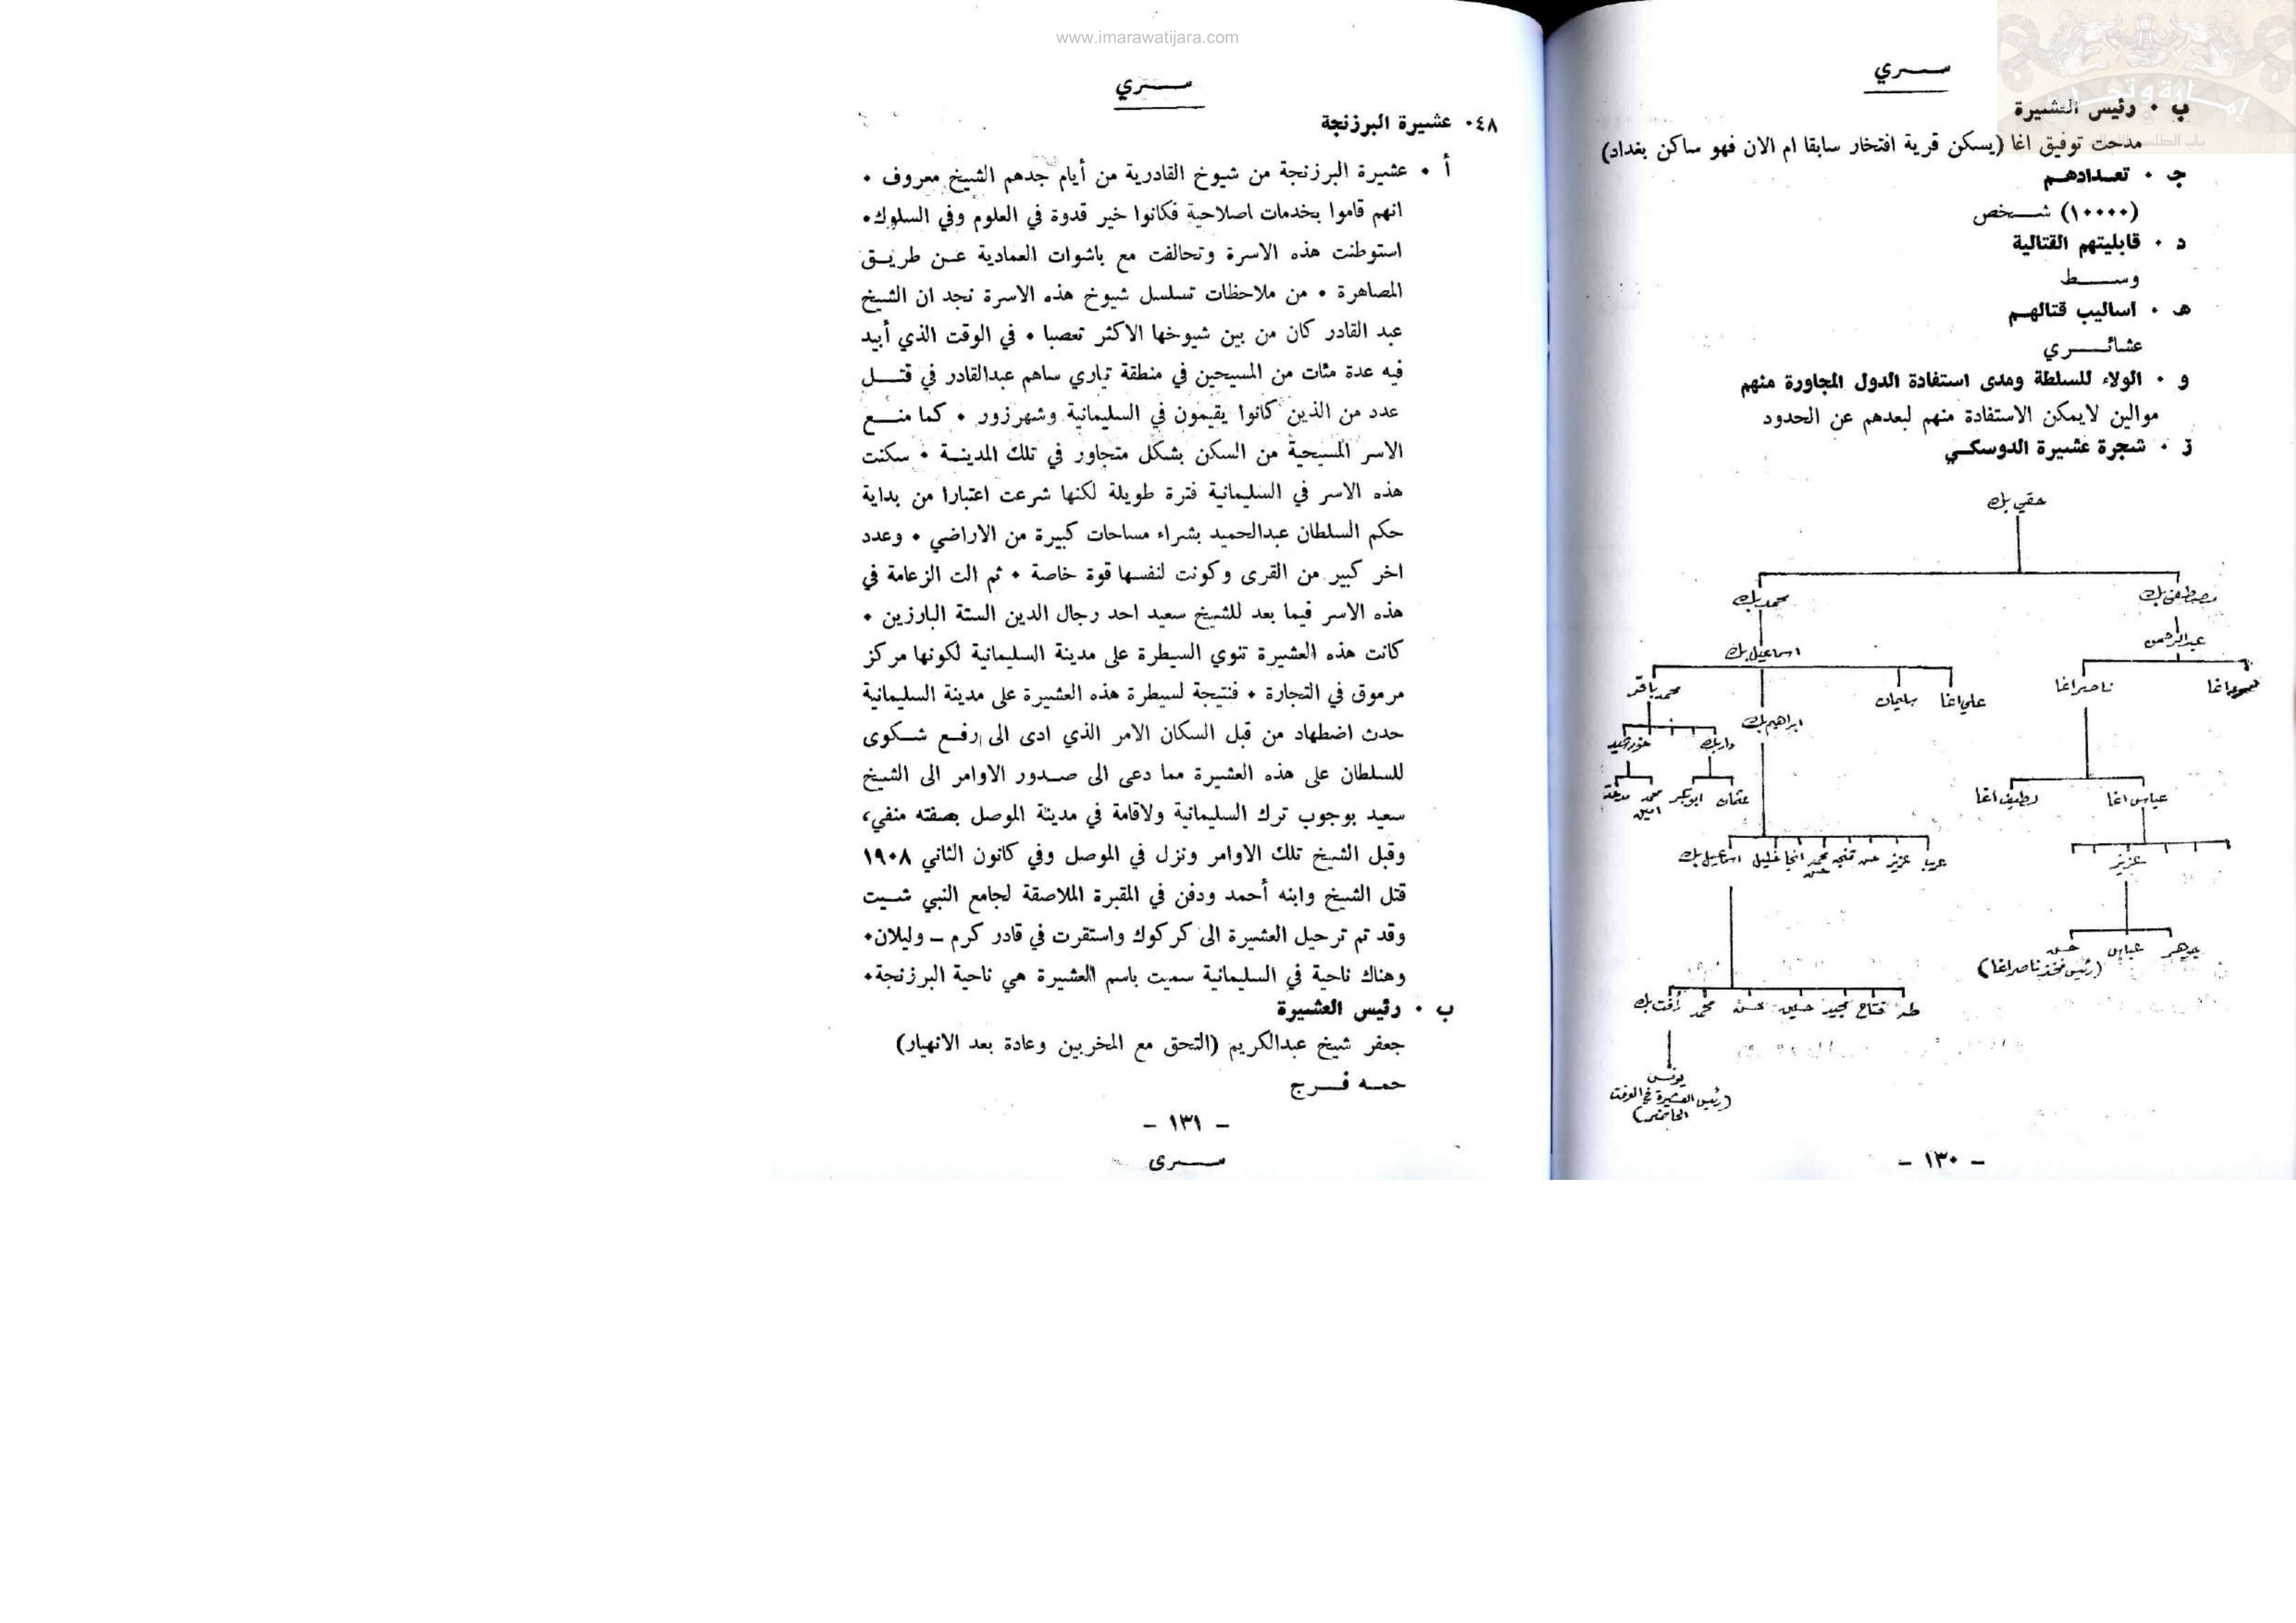 www.imarawatijara.com
ســـري
ب ٠ رئيس العشيرة
مدحت توفيق اغا (يسكن قرية افتخار سابقا ام الان فهو ساكن بغداد)
جـ ٠ تعـدادهـم
(١٠٠٠٠) شـــخص
د ٠ قابليتهم القتالية
وســـــط
هـ ٠ اساليب قتالهـم
عشائـــــري
و ٠ الولاء للسلطة ومدى استفادة الدول المجاورة منهم
موالين لايمكن الاستفادة منهم لبعدهم عن الحدود
ز ٠ شجرة عشيرة الدوسكـي
حقي بك
مصطفى بك
محمد بك
عبدالرحمن
اسماعيل بك
ناصر اغا
علي اغا
سليمان
ابراهيم بك
محمد باقر
خورشيد
عباس اغا
لطيف اغا
عثمان
ابوبكر
محمد امين
مدحت
عزيز
عرب
عزيز
حسن
محمد حسن
خليل
اسماعيل بك
عباس
حسن
(رئيس فخذ ناصر اغا)
طه
فتاح
مجيد
حسين
حسن
محمد
رأفت بك
يونس
(رئيس العشيرة في الوقت
الحاضر)
ــ ١٣٠ ــ
ســـري
٠٤٨ عشيرة البرزنجة
أ ٠ عشيرة البرزنجة من شيوخ القادرية من أيام جدهم الشيخ معروف ٠
انهم قاموا بخدمات اصلاحية فكانوا خير قدوة في العلوم وفي السلوك٠
استوطنت هذه الاسرة وتحالفت مع باشوات العمادية عـن طريـق
المصاهرة ٠ من ملاحظات تسلسل شيوخ هذه الاسرة نجد ان الشيخ
عبد القادر كان من بين شيوخها الاكثر تعصبا ٠ في الوقت الذي أبيد
فيه عدة مئات من المسيحين في منطقة تياري ساهم عبدالقادر في قتـــل
عدد من الذين كانوا يقيمون في السليمانية وشهرزور ٠ كما منـــع
الاسر المسيحية من السكن بشكل متجاور في تلك المدينـة ٠ سكنت
هذه الاسر في السليمانية فترة طويلة لكنها شرعت اعتبارا من بداية
حكم السلطان عبدالحميد بشراء مساحات كبيرة من الاراضي ٠ وعدد
اخر كبير من القرى وكونت لنفسها قوة خاصة ٠ ثم الت الزعامة في
هذه الاسر فيما بعد للشيخ سعيد احد رجال الدين الستة البارزين ٠
كانت هذه العشيرة تنوي السيطرة على مدينة السليمانية لكونها مركز
مرموق في التجارة ٠ فنتيجة لسيطرة هذه العشيرة على مدينة السليمانية
حدث اضطهاد من قبل السكان الامر الذي ادى الى رفـع شـكوى
للسلطان على هذه العشيرة مما دعى الى صـدور الاوامر الى الشيخ
سعيد بوجوب ترك السليمانية ولاقامة في مدينة الموصل بصفته منفي،
وقبل الشيخ تلك الاوامر ونزل في الموصل وفي كانون الثاني ١٩٠٨
قتل الشيخ وابنه أحمد ودفن في المقبرة الملاصقة لجامع النبي شـيت
وقد تم ترحيل العشيرة الى كركوك واستقرت في قادر كرم ــ وليلان٠
وهناك ناحية في السليمانية سميت باسم العشيرة هي ناحية البرزنجة٠
ب ٠ رئيس العشيرة
جعفر شيخ عبدالكريم (التحق مع المخربين وعادة بعد الانهيار)
حمـه فـــرج
ــ ١٣١ ــ
ســـرى